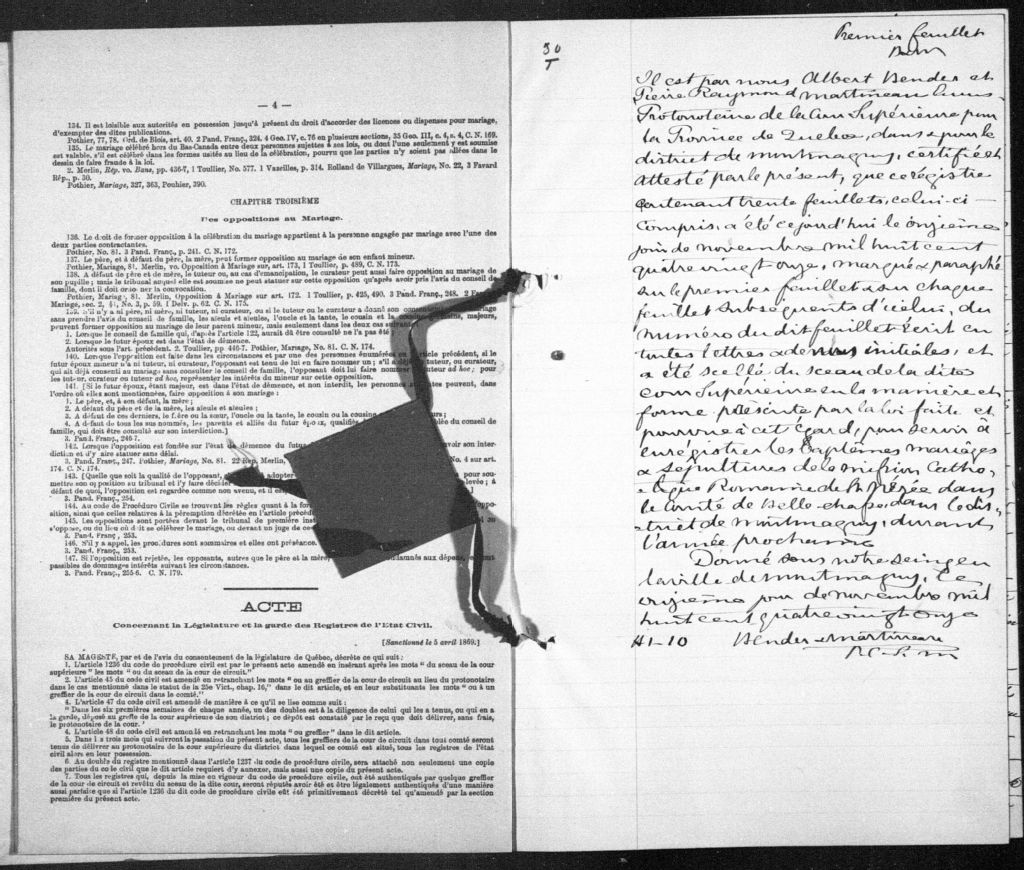 — 4 —
134. Il est loisible aux autorités en possession jusqu'à présent du droit d'accorder des licences ou dispenses pour mariage,
d'exempter des dites publications.
Pothier, 77, 78. Ord. de Blois, art. 40. 2 Pand. Franç., 324. 4 Geo. IV, c. 76 en plusieurs sections, 35 Geo. III, c. 4, s. 4, C. N. 169.
135. Le mariage célébré hors du Bas-Canada entre deux personnes sujettes à ses lois, ou dont l'une seulement y est soumise
est valable, s'il est célébré dans les formes usités au lieu de la célébration, pourvu que les parties n'y soient pas allées dans le
dessein de faire fraude à la loi.
2. Merlin, Rép. vo. Bans, pp. 436-7, 1 Toullier, No. 577. 1 Vazeilles, p. 314. Rolland de Villargues, Mariage, No. 22, 3 Favard
Rép., p. 30.
Pothier, Mariage, 327, 363, Pouhier, 390.
CHAPITRE TROISIÈME
Des oppositions au Mariage.
136. Le droit de former opposition à la célébration du mariage appartient à la personne engagée par mariage avec l'une des
deux parties contractantes.
Pothier, No. 81. 3 Pand. Franç., p. 241. C. N. 172.
137. Le père, et à défaut du père, la mère, peut former opposition au mariage de son enfant mineur.
Pothier, Mariage, 81. Merlin, vo. Opposition à Mariage sur, art. 173, 1 Toullier, p. 489, C. N. 173.
138. A défaut de père et de mère, le tuteur ou, au cas d'émancipation, le curateur peut aussi faire opposition au mariage de
son pupille; mais le tribunal auquel elle est soumise ne peut statuer sur cette opposition qu'après avoir pris l'avis du conseil de
famille, dont il doit ordonner la convocation.
Pothier, Mariage, 81. Merlin, Opposition à Mariage sur art. 172. 1 Toullier, p. 425, 490. 3 Pand. Franç., 248. 2
Mariage, sec. 2, §1, No. 3, p. 59. 1 Delv. p. 62. C. N. 175.
139. S'il n'y a ni père, ni mère, ni tuteur, ni curateur, ou si le tuteur ou le curateur a donné son
sans prendre l'avis du conseil de famille, les aïeuls et aïeules, l'oncle et la tante, le cousin et la majeurs,
peuvent former opposition au mariage de leur parent mineur, mais seulement dans les deux cas
1. Lorsque le conseil de famille qui, d'après l'article 122, aurait dû être consulté ne l'a pas été
2. Lorsque le futur époux est dans l'état de démence.
Autorités sous l'art. précédent. 2. Toullier, pp. 446-7. Pothier, Mariage, No. 81. C. N. 174.
140. Lorsque l'opposition est faite dans les circonstances et par une des personnes énumérées précédent, si le
futur époux mineur n'a ni tuteur, ni curateur, l'opposant est tenu de lui en faire nommer un; s'il a tuteur, ou curateur,
qui ait déjà consenti au mariage sans consulter le conseil de famille, l'opposant doit lui faire ad hoc; pour
les tuteur, curateur ou tuteur ad hoc, représenter les intérêts du mineur sur cette opposition.
141. [Si le futur époux, étant majeur, est dans l'état de démence, et non interdit, les peuvent, dans
l'ordre où elles sont mentionnées, faire opposition à son mariage:
1. Le père, et, à son défaut, la mère;
2. A défaut du père et de la mère, les aïeuls et aïeules;
3. A défaut de ces derniers, le frère ou la sœur, l'oncle ou la tante, le cousin ou la
4. A défaut de tous les sus nommés, les parents et alliés du futur époux, du conseil de
famille, qui doit être consulté sur son interdiction.]
3. Pand. Franç., 246-7.
142. Lorsque l'opposition est fondée sur l'état de démence du son inter-
diction et d'y faire statuer sans délai.
3. Pand. Franç., 247. Pothier, Mariage, No. 81. Merlin, No. 4 sur art.
174. C. N. 174.
143. [Quelle que soit la qualité de l'opposant, adopter pour sou-
mettre son opposition au tribunal et l'y faire
défaut de quoi, l'opposition est regardée comme non avenu,
3. Pand. Franç., 254.
144. Au code de Procédure Civile se trouvent les règles quant à la
sition, ainsi que celles relatives à la péremption décrétée en l'article
145. Les oppositions sont portées devant le tribunal de première
s'oppose, ou du lieu où doit se célébrer le mariage, ou devant un juge
3. Pand. Franç., 253.
146. S'il y a appel, les procédures sont sommaires et elles ont préséance.
3. Pand. Franç., 253.
147. Si l'opposition est rejetée, les opposants, autres que le père et la mère, aux dépens, et
passibles de dommages intérêts suivant les circonstances.
3. Pand. Franç., 255-6. C. N. 179.
ACTE
Concernant la Législature et la garde des Registres de l'Etat Civil.
[Sanctionné le 5 avril 1869.]
SA MAGESTÉ, par et de l'avis du consentement de la législature de Québec, décrète ce qui suit:
1. L'article 1236 du code de procédure civil est par le présent acte amendé en insérant après les mots " du sceau de la cour
supérieure " les mots " ou du sceau de la cour de circuit."
2. L'article 45 du code civil est amendé en retranchant les mots " ou au greffier de la cour de circuit au lieu du protonotaire
dans le cas mentionné dans le statut de la 25e Vict., chap. 16," dans le dit article, et en leur substituants les mots " ou à un
greffier de la cour de circuit dans le comté."
4. L'article 47 du code civil est amendé de manière à ce qu'il se lise comme suit:
" Dans les six premières semaines de chaque année, un des doubles est à la diligence de celui qui les a tenus, ou qui en a
la garde, déposé au greffe de la cour supérieure de son district; ce dépôt est constaté par le reçu que doit délivrer, sans frais,
le protonotaire de la cour."
4. L'article 48 du code civil est amendé en retranchant les mots " ou greffier " dans le dit article.
5. Dans les trois mois qui suivront la passation du présent acte, tous les greffiers de la cour de circuit dans tout comté seront
tenus de délivrer au protonotaire de la cour supérieure du district dans lequel ce comté est situé, tous les registres de l'état
civil alors en leur possession.
6. Au double du registre mentionné dans l'article 1237 du code de procédure civile, sera attaché non seulement une copie
des parties du code civile que le dit article requiert d'y annexer, mais aussi une copie du présent acte.
7. Tous les registres qui, depuis la mise en vigueur du code de procédure civile, ont été authentiqués par quelque greffier
de la cour de circuit et revêtu du sceau de la dite cour, seront réputés avoir été et être légalement authentiqués d'une manière
aussi parfaite que si l'article 1236 du dit code de procédure civile eût été primitivement décrété tel qu'amendé par la section
première du présent acte.
30
T
Premier feuillet
B & M
Il est par nous Albert Bender et
Pierre Raymond Martineau
Protonotaire de la Cour Supérieure pour
la Province de Quebec, dans & pour le
district de Montmagny, certifié et
attesté par le présent, que ce régistre
contenant trente feuillets, celui-ci
compris, a été cejourd'hui le onzième
jour de novembre mil huit cent
quatre vingt onze, marqué & paraphé
sur le premier feuillet & sur chaque
feuillet subséquents d'icelui, du
numéro du dit feuillet écrit en
toutes lettres & de nos initiales, et
a été scellé du sceau de la dite
cour Supérieure en la manière et
forme présente par la loi faite et
pourvue à cet égard, pour servir à
enrégistrer les Baptêmes mariages
& sépultures de la mission Catho-
lique Romaine de St Nérée dans
le comté de Bellechasse, dans le dis-
trict de Montmagny, durant
l'année prochaine
Donné sous notre seing en
la ville de Montmagny, ce
onzième jour de novembre mil
huit cent quatre vingt onze
H 1-10 Bender & Martineau
P. C. S. M